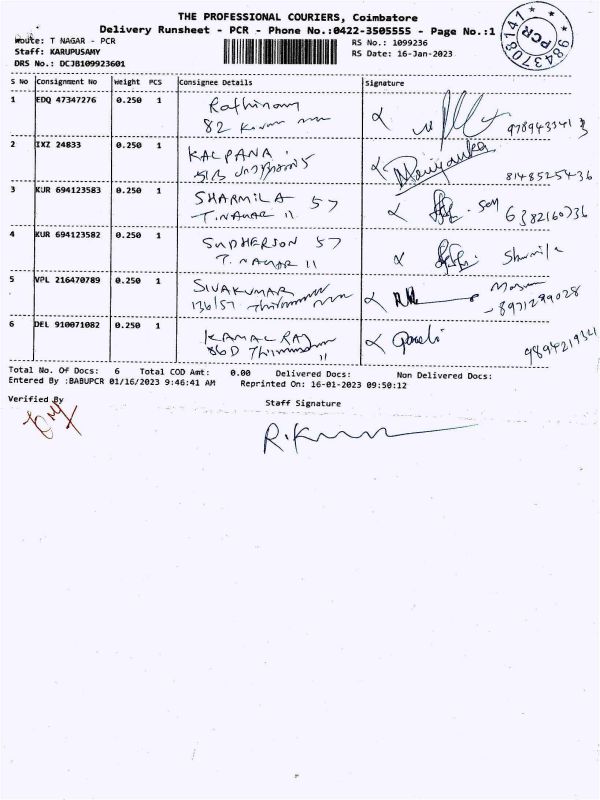 THE PROFESSIONAL COURIERS, Coimbatore
Delivery Runsheet - PCR - Phone No.:0422-3505555 - Page No.:1
Route: T NAGAR - PCR
RS No.: 1099236
Staff: KARUPUSAMY
RS Date: 16-Jan-2023
DRS No.: DCJB109923601
9843708141 * * *
PCR
S No Consignment No Weight PCS Consignee Details Signature
1 EDQ 47347276 0.250 1
82
2 IXZ 24833 0.250 1 KALPANA
Priyanka 8148525436
3 KUR 694123583 0.250 1 SHARMILA 57
T.NAGAR 11
son 6382160736
4 KUR 694123582 0.250 1 SUDHERSON 57
T. NAGAR 11
Sharmila
5 VPL 216470789 0.250 1 SIVAKUMAR
136/57
8971299028
6 DEL 910071082 0.250 1 KAMAL RAJ
86D
Total No. Of Docs: 6 Total COD Amt: 0.00 Delivered Docs: Non Delivered Docs:
Entered By :BABUPCR 01/16/2023 9:46:41 AM Reprinted On: 16-01-2023 09:50:12
Verified By
Staff Signature